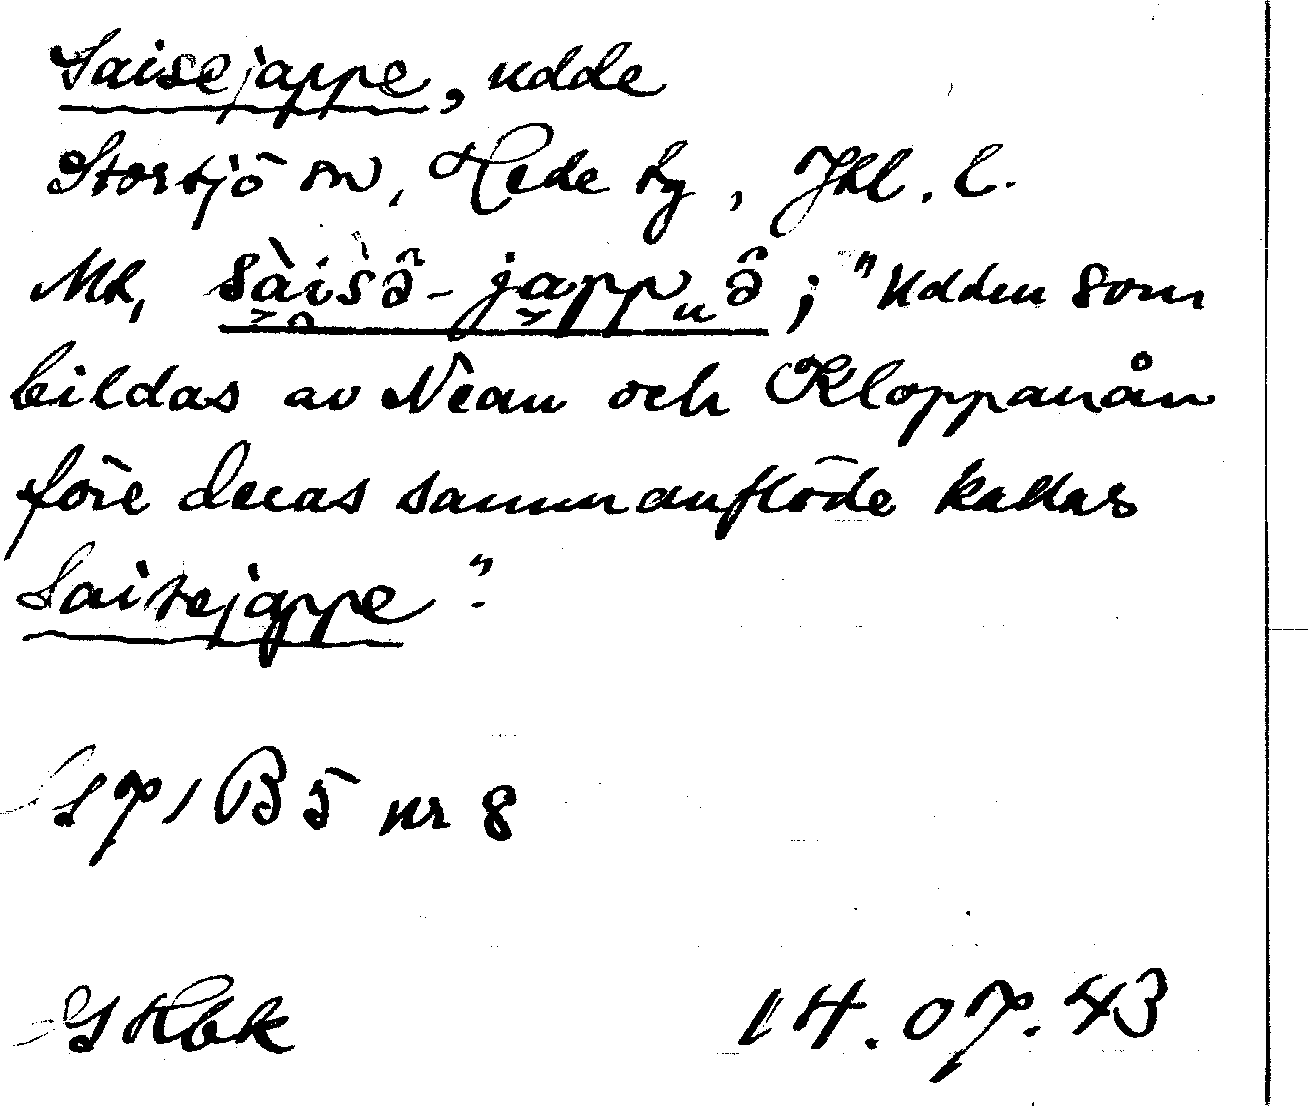 Saisejappe, udde
Storsjö sn, Hede tg, Jkl. l.
sàisə̂-jappₙə̂; "Udden som
bildas av Nean och Kloppanån
före deras sammanflöde kallas
Saisejappe".
B 5 nr 8
14.07.43